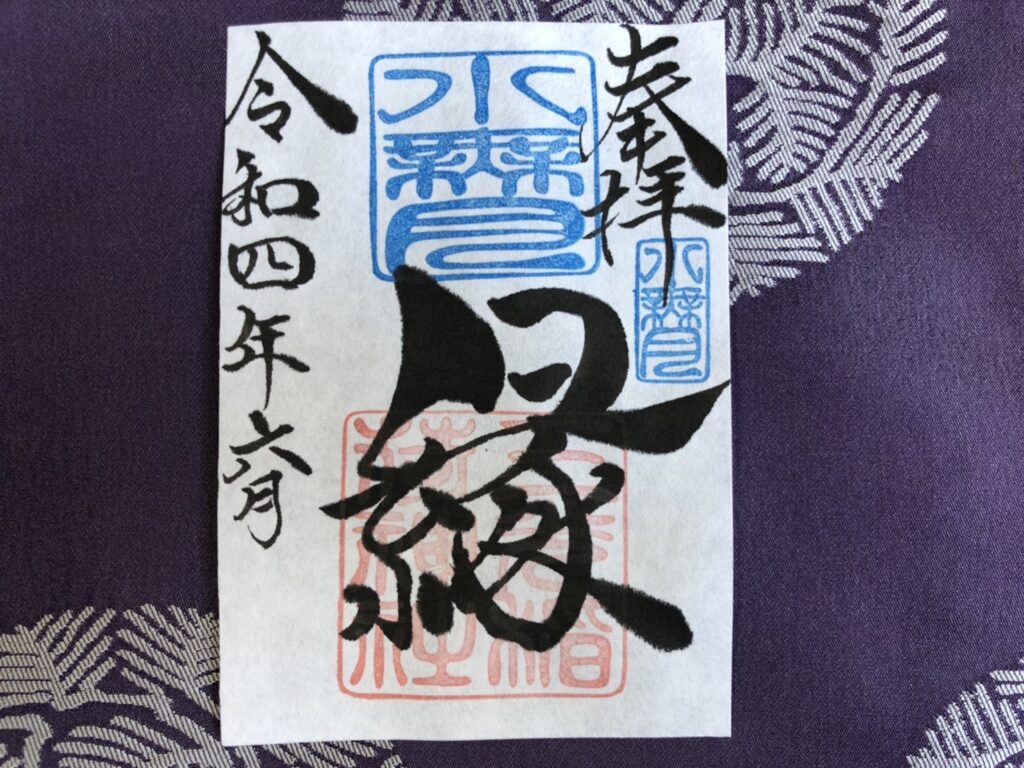 奉拝
水無月
水無月
縁
令和四年六月